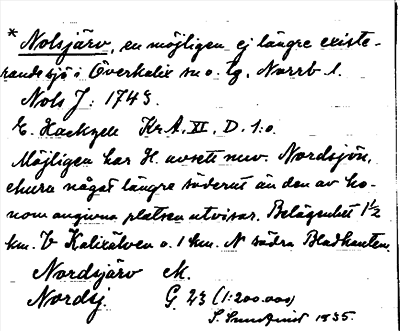 * Nolsjärv, en möjligen ej längre existe-
rande sjö i Överkalix sn o. tg, Norrb. l.
Nols J: 1743.
E. Hackzell Kr.A. XI. D. 1:o.
Möjligen har H. avsett nuv. Nordsjön,
ehuru något längre söderut än den av ho-
nom angivna platsen utvisar. Belägenhet 1 1/2
km. V Kalixälven o. 1 km. N södra Bladkanten.
Nordsjärv M.
Nordsj. G. 23 (1:200.000)
S. Sundqvist 1935.